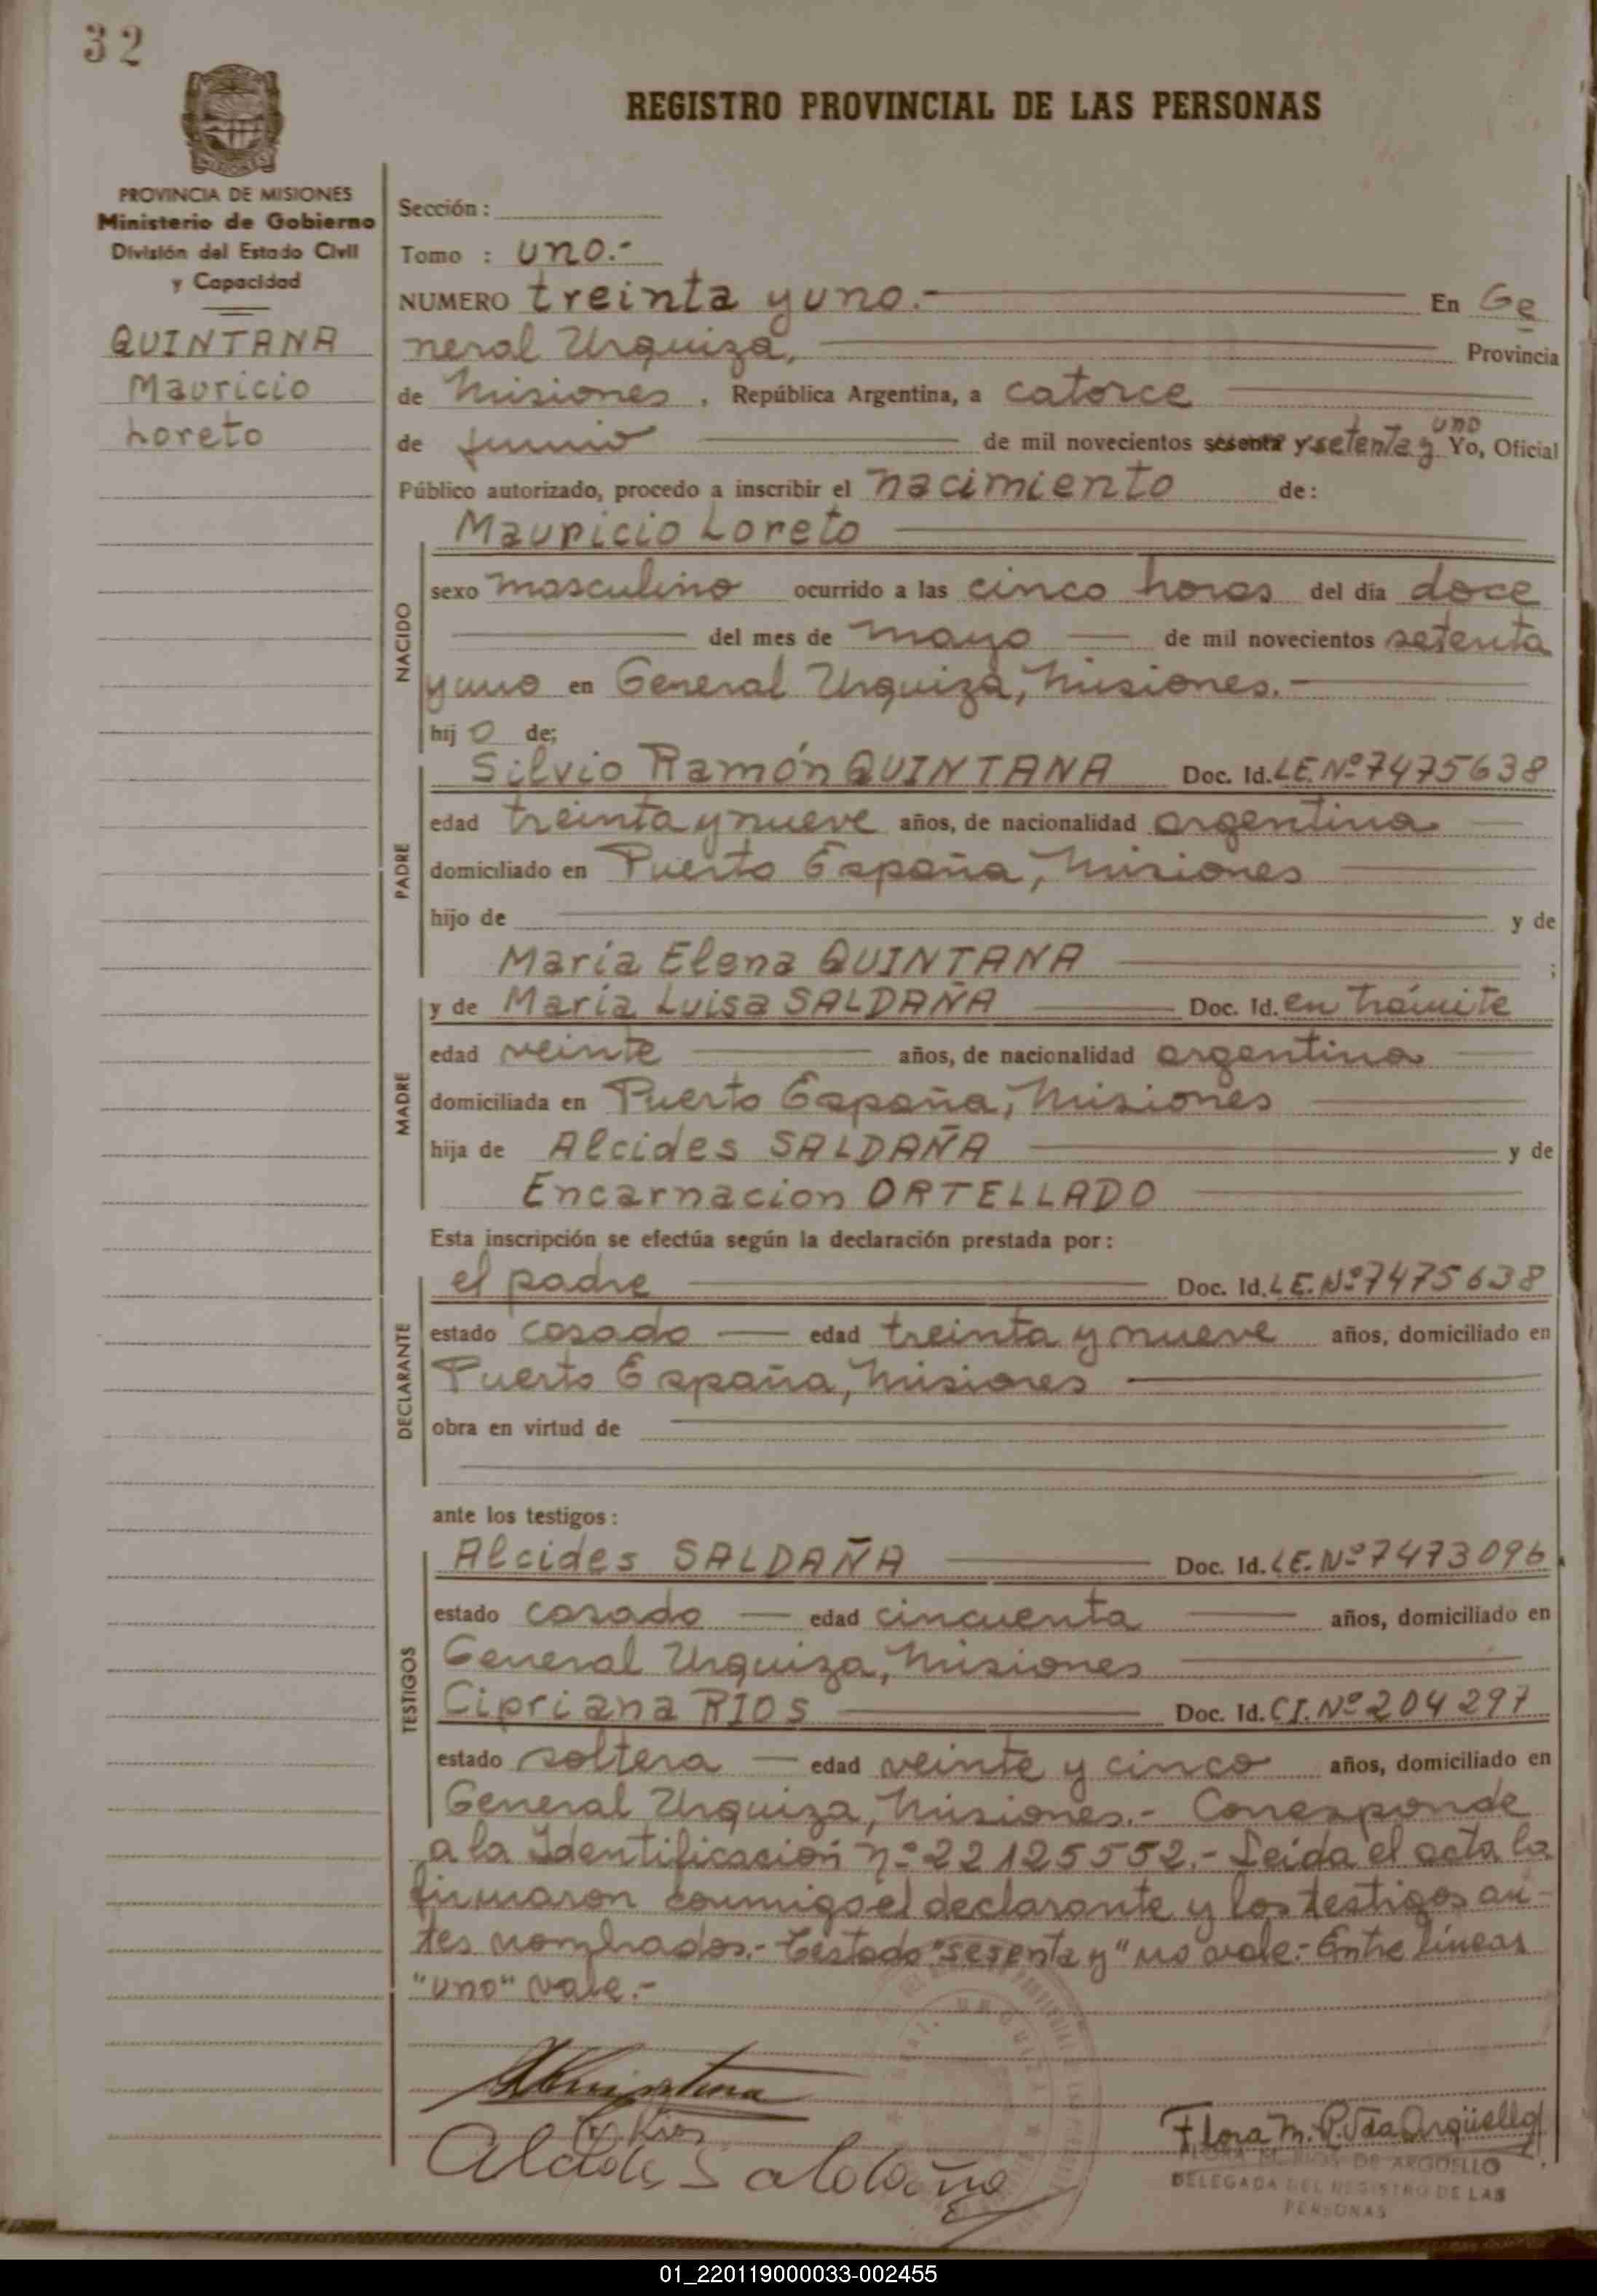 32
REGISTRO PROVINCIAL DE LAS PERSONAS
MISIONES
PROVINCIA DE MISIONES
Ministerio de Gobierno
División del Estado Civil
y Capacidad
QUINTANA
Mauricio
Loreto
Sección :
Tomo : uno.-
NUMERO treinta y uno.- En Ge
neral Urquiza, Provincia
de Misiones , República Argentina, a catorce
uno
de junio de mil novecientos sesenta y setenta y Yo, Oficial
Público autorizado, procedo a inscribir el nacimiento de:
NACIDO
Mauricio Loreto
sexo masculino ocurrido a las cinco horas del día doce
del mes de mayo de mil novecientos setenta
y uno en General Urquiza, Misiones.-
hij o de;
PADRE
Silvio Ramón QUINTANA Doc. Id. L.E. Nº 7475638
edad treinta y nueve años, de nacionalidad argentina
domiciliado en Puerto España, Misiones
hijo de y de
María Elena QUINTANA ;
MADRE
y de María Luisa SALDAÑA Doc. Id. en trámite
edad veinte años, de nacionalidad argentina
domiciliada en Puerto España, Misiones
hija de Alcides SALDAÑA y de
Encarnacion ORTELLADO
Esta inscripción se efectúa según la declaración prestada por :
DECLARANTE
el padre Doc. Id. L.E. Nº 7475638
estado casado edad treinta y nueve años, domiciliado en
Puerto España, Misiones
obra en virtud de
ante los testigos :
TESTIGOS
Alcides SALDAÑA Doc. Id. L.E. Nº 7473096
estado casado edad cincuenta años, domiciliado en
General Urquiza, Misiones
Cipriana RIOS Doc. Id. C.I. Nº 204297
estado soltera edad veinte y cinco años, domiciliado en
General Urquiza, Misiones.- Corresponde
a la Identificación nº 22125552.- Leida el acta la
firmaron conmigo el declarante y los testigos an-
tes nombrados.- Testado "sesenta y" no vale.- Entre líneas
"uno" vale.-
Rios
Flora M. R. Vda Argüello
Alcides Saldaña
FLORA M. RIOS DE ARGÜELLO
DELEGADA DEL REGISTRO DE LAS
PERSONAS
01_220119000033-002455